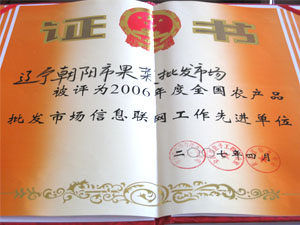 证书
辽宁朝阳市果菜批发市场
被评为2006年度全国农产品
批发市场信息联网工作先进单位
二〇〇七年四月